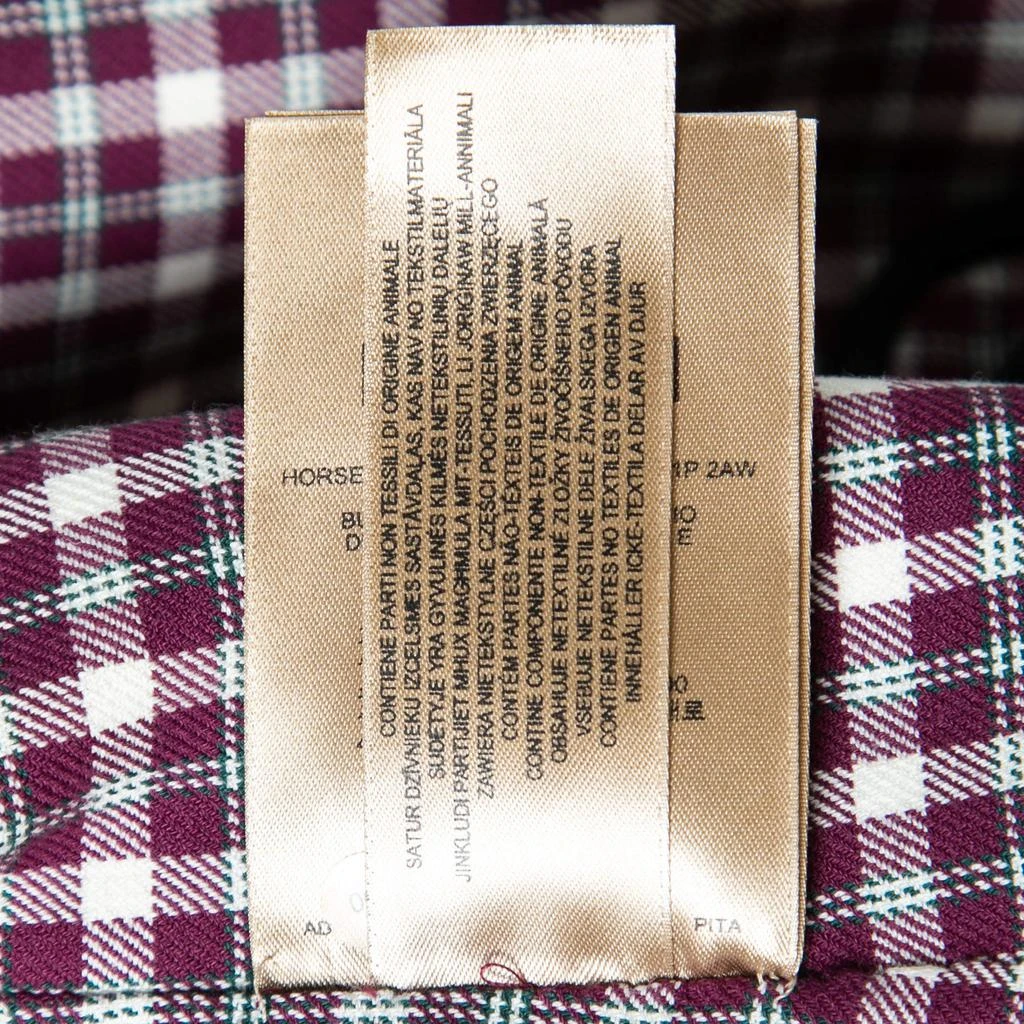 CONTIENE PARTI NON TESSILI DI ORIGINE ANIMALE
SATUR DZĪVNIEKU IZCELSMES SASTĀVDAĻAS, KAS NAV NO TEKSTILMATERIĀLA
SUDĖTYJE YRA GYVULINĖS KILMĖS NETEKSTILINIŲ DALELIŲ
JINKLUDI PARTIJIET MHUX MAGHMULA MIT-TESSUTI, LI JORIĠINAW MILL-ANNIMALI
ZAWIERA NIETEKSTYLNE CZĘŚCI POCHODZENIA ZWIERZĘCEGO
CONTÉM PARTES NÃO-TÊXTEIS DE ORIGEM ANIMAL
CONȚINE COMPONENTE NON-TEXTILE DE ORIGINE ANIMALĂ
OBSAHUJE NETEXTILNÉ ZLOŽKY ŽIVOČÍŠNEHO PÔVODU
VSEBUJE NETEKSTILNE DELE ŽIVALSKEGA IZVORA
CONTIENE PARTES NO TEXTILES DE ORIGEN ANIMAL
INNEHÅLLER ICKE-TEXTILA DELAR AV DJUR
HORSE
1P 2AW
AD
PITA